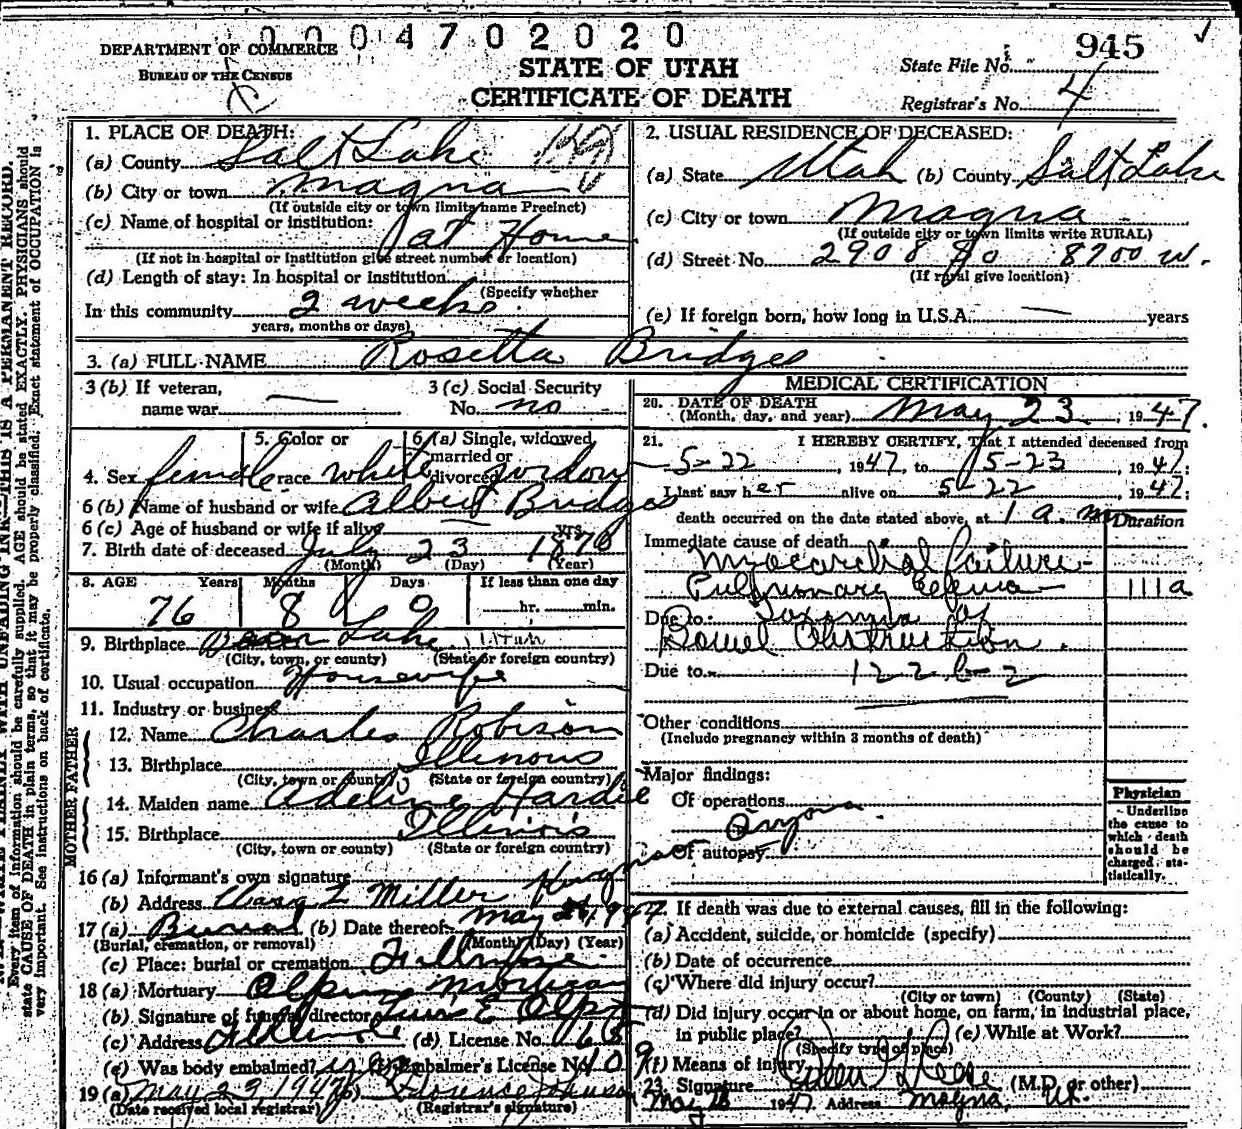 0004702020
DEPARTMENT OF COMMERCE
BUREAU OF THE CENSUS
STATE OF UTAH
CERTIFICATE OF DEATH
State File No. 945
Registrar's No. 4
1. PLACE OF DEATH:
(a) County Salt Lake
(b) City or town magna
(If outside city or town limits name Precinct)
(c) Name of hospital or institution:
at Home
(If not in hospital or institution give street number or location)
(d) Length of stay: In hospital or institution
(Specify whether
In this community 2 weeks
years, months or days)
2. USUAL RESIDENCE OF DECEASED:
(a) State Utah (b) County Salt Lake
(c) City or town Magna
(If outside city or town limits write RURAL)
(d) Street No. 2908 So 8700 W.
(If rural give location)
(e) If foreign born, how long in U.S.A. — years
3. (a) FULL NAME Rosetta Bridges
3 (b) If veteran,
name war —
3 (c) Social Security
No. no
4. Sex female
5. Color or
race white
6 (a) Single, widowed
married or
divorced
6 (b) Name of husband or wife Albert Bridges
6 (c) Age of husband or wife if alive — yrs.
7. Birth date of deceased July 23 1870
(Month) (Day) (Year)
8. AGE Years Months Days If less than one day
76 8 0 hr. min.
9. Birthplace Lake
(City, town, or county) (State or foreign country)
10. Usual occupation Housewife
11. Industry or business
FATHER
12. Name Charles Robison
13. Birthplace Illinois
(City, town or county) (State or foreign country)
MOTHER
14. Maiden name Adeline Hardie
15. Birthplace Illinois
(City, town or county) (State or foreign country)
16 (a) Informant's own signature
(b) Address Miller
17 (a) Burial (b) Date thereof May 1947
(Burial, cremation, or removal) (Month) (Day) (Year)
(c) Place: burial or cremation Fillmore
18 (a) Mortuary
(b) Signature of funeral director
(c) Address Fillmore (d) License No.
(e) Was body embalmed? yes (f) Embalmer's License No.
19 (a) May 23, 1947 (b) Florence Johnson
(Date received local registrar) (Registrar's signature)
MEDICAL CERTIFICATION
20. DATE OF DEATH
(Month, day, and year) May 23, 1947.
21. I HEREBY CERTIFY, That I attended deceased from
5-22, 1947, to 5-23, 1947;
I last saw her alive on 5-22, 1947;
death occurred on the date stated above, at 1 a.m.
Duration
Immediate cause of death
Myocardial failure
Pulmonary Edema 111a
Due to: Toxemia of
Bowel Obstruction.
Due to 122.b-2
Other conditions
(Include pregnancy within 3 months of death)
Major findings:
Of operations
Of autopsy
Physician
Underline
the cause to
which death
should be
charged, sta-
tistically.
22. If death was due to external causes, fill in the following:
(a) Accident, suicide, or homicide (specify)
(b) Date of occurrence
(c) Where did injury occur?
(City or town) (County) (State)
(d) Did injury occur in or about home, on farm, in industrial place,
in public place? (e) While at Work?
(Specify type of place)
(f) Means of injury
23. Signature (M.D. or other)
1947 Address Magna, Ut.
WRITE PLAINLY WITH UNFADING INK—THIS IS A PERMANENT RECORD.
Every item of information should be carefully supplied. AGE should be stated EXACTLY. PHYSICIANS should
state CAUSE OF DEATH in plain terms, so that it may be properly classified. Exact statement of OCCUPATION is
very important. See instructions on back of certificate.